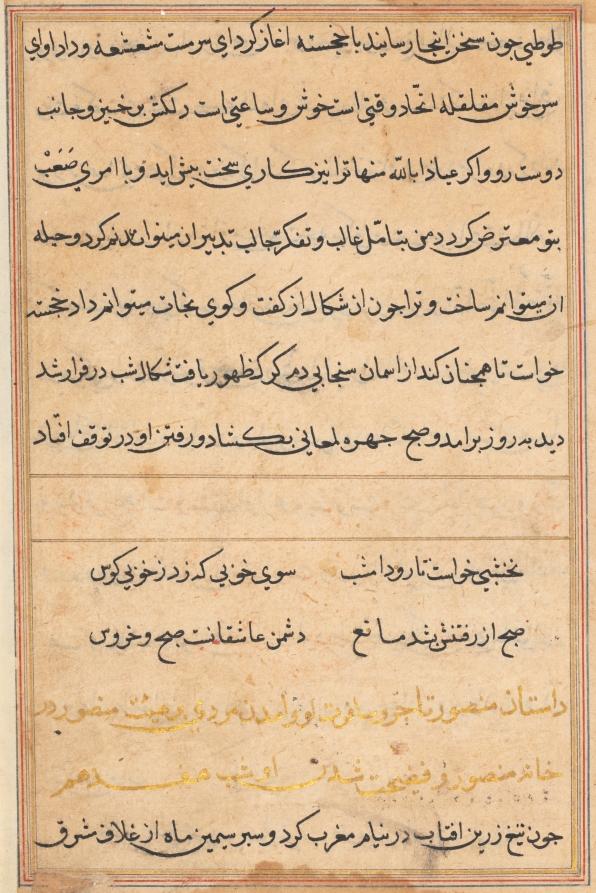 طوطي جون سخن اینجا رسانید با خجسته اغاز کرد ای سرمست شعشعه وداد اوای
سرخوش مقلقله اتّحاد وقتي است خوش و ساعتي است دلکش برخیز و جانب
دوست رو واکر عیاذا بالله منها ترا نیز کاري سخت بیش اید و با امري صَعَبْ
بتو معترض کردد من بتامّل غالب و تفکر جالب تدبیر ان میتوانم کرد و حیله
ان میتوانم ساخت و ترا جون ان شکال از کفت و کوي نجات میتوانم داد خجسته
خواست تا همجنان کند از اسمان سنجابي دم کرک ظهور یافت شکال شب در فرار شد
دیدبه روز برامد و صبح جهره لمعاني بکشاد و رفتن او در توقف افتاد
نخشبي خواست تا رود امشب سوي خوبي که زد ز خوبي کوس
صبح از رفتنش بشد مانع دشمن عاشقانت صبح و خروس
داستان منصور تاجر و مسافرت او و امدن مردي بر هیئت منصور در
خانه منصور و فضیحت شدن او شب هفدهم
جون تیغ زرین افتاب در نیام مغرب کرد و سبر سیمین ماه از غلاف مشرق